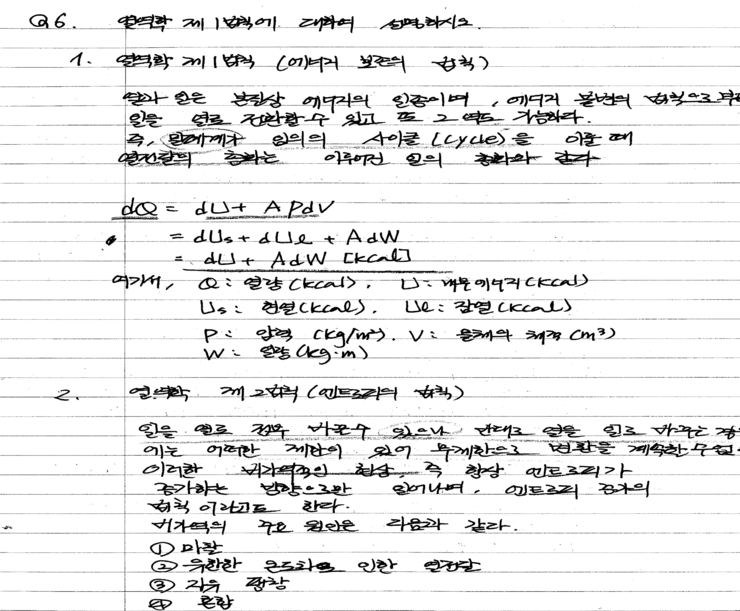 Q6. 열역학 제 1법칙에 대하여 설명하시오.
1. 열역학 제 1법칙 (에너지 보존의 법칙)
열과 일은 본질상 에너지의 일종이며, 에너지 불변의 법칙으로부
일을 열로 전환할 수 있고 또 그 역도 가능하다.
즉, 밀폐계가 임의의 사이클 (cycle)을 이룰 때
열전달의 총화는 이루어진 일의 총화와 같다
dQ = dU + APdV
= dUs + dUe + AdW
= dU + AdW [kcal]
여기서, Q : 열량 (kcal), U : 내부에너지 (kcal)
Us : 현열 (kcal), Ue : 잠열 (kcal)
P : 압력 (kg/m²). V : 물체의 체적 (m³)
W : 일량 (kg·m)
2. 열역학 제 2법칙 (엔트로피의 법칙)
일을 열로 전부 바꿀수 있으나 반대로 열을 일로 바꾸는
에는 어떠한 제한이 있어 무제한으로 변환을 계속할 수 없
이러한 비가역적인 현상, 즉 항상 엔트로피가
증가하는 방향으로만 일어나며, 엔트로피 증가의
법칙 이라고도 한다.
비가역의 주요 원인은 다음과 같다.
① 마찰
② 유한한 온도차로 인한 열전달
③ 자유 팽창
④ 혼합